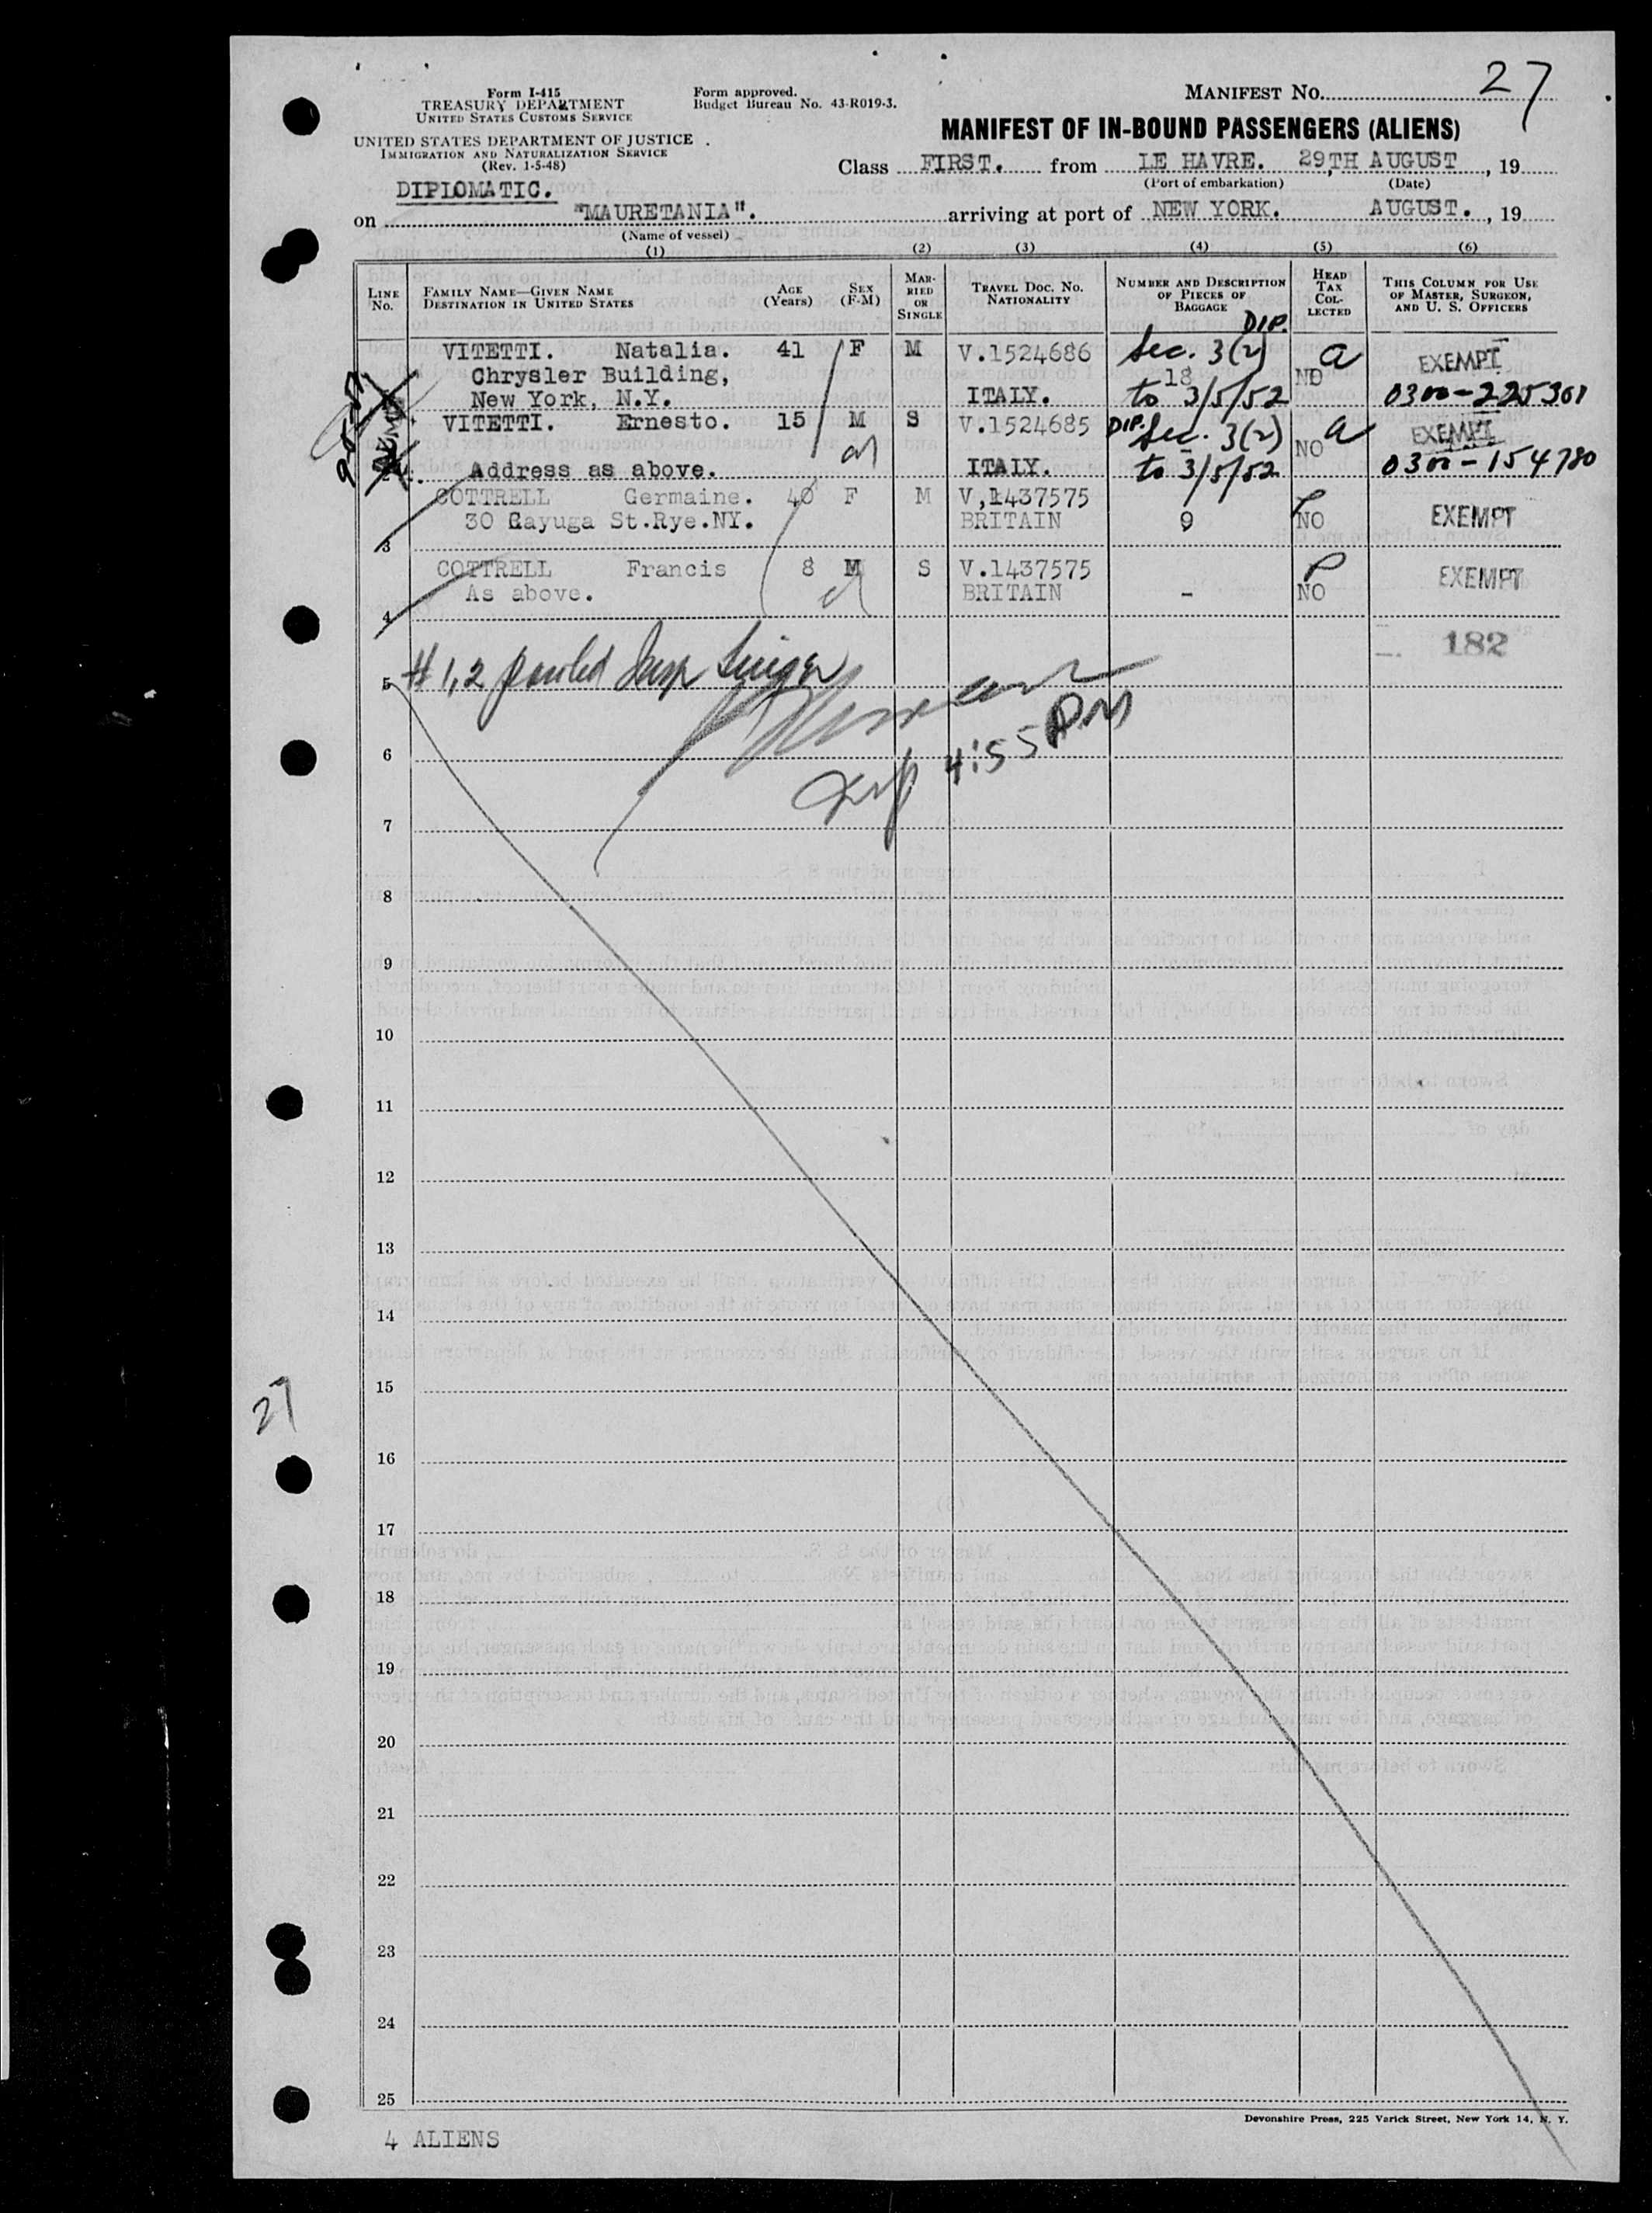 27
Form I-415
TREASURY DEPARTMENT
UNITED STATES CUSTOMS SERVICE
Form approved.
Budget Bureau No. 43-R019-3.
MANIFEST NO.
UNITED STATES DEPARTMENT OF JUSTICE
IMMIGRATION AND NATURALIZATION SERVICE
(Rev. 1-5-48)
MANIFEST OF IN-BOUND PASSENGERS (ALIENS)
Class FIRST. from LE HAVRE. 29TH AUGUST, 19
(Port of embarkation) (Date)
DIPLOMATIC.
on "MAURETANIA". arriving at port of NEW YORK. AUGUST., 19
(Name of vessel)
(1) (2) (3) (4) (5) (6)
LINE NO. FAMILY NAME—GIVEN NAME DESTINATION IN UNITED STATES AGE (Years) SEX (F-M) MARRIED OR SINGLE TRAVEL DOC. NO. NATIONALITY NUMBER AND DESCRIPTION OF PIECES OF BAGGAGE HEAD TAX COLLECTED THIS COLUMN FOR USE OF MASTER, SURGEON, AND U. S. OFFICERS
DIP.
VITETTI. Natalia. 41 F M V.1524686 Sec. 3(2) a EXEMPT
Chrysler Building, 18 NO
New York, N.Y. ITALY. to 3/5/52 0300-225361
VITETTI. Ernesto. 15 M S V.1524685 DIP. Sec. 3(2) NO a EXEMPT
Address as above. ITALY. to 3/5/52 0300-154780
COTTRELL Germaine. 40 F M V,1437575
30 Cayuga St.Rye.NY. BRITAIN 9 NO EXEMPT
3
COTTRELL Francis 8 M S V.1437575 P EXEMPT
As above. BRITAIN - NO
4
182
5 # 1,2 Insp
4:55 PM
6
7
8
9
10
11
12
13
14
15
27
16
17
18
19
20
21
22
23
24
25
Devonshire Press, 225 Varick Street, New York 14, N. Y.
4 ALIENS